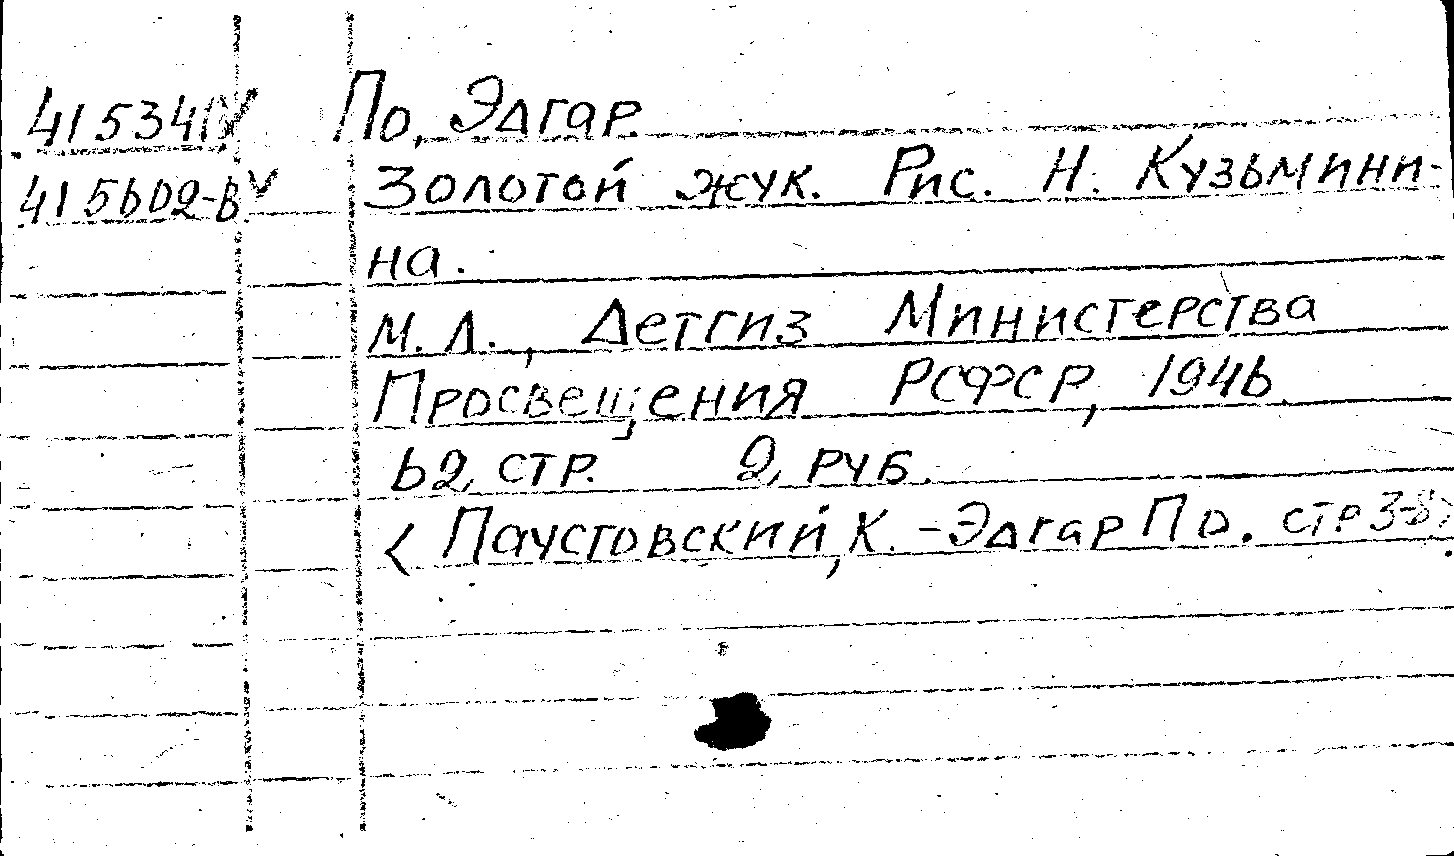 415341 V По, Эдгар.
415602-В V Золотой жук. Рис. Н. Кузьмини-
на.
М. Л., Детгиз Министерства
Просвещения РСФСР, 1946.
62, стр. 2, руб.
< Паустовский, К. - Эдгар По. стр 3-8>